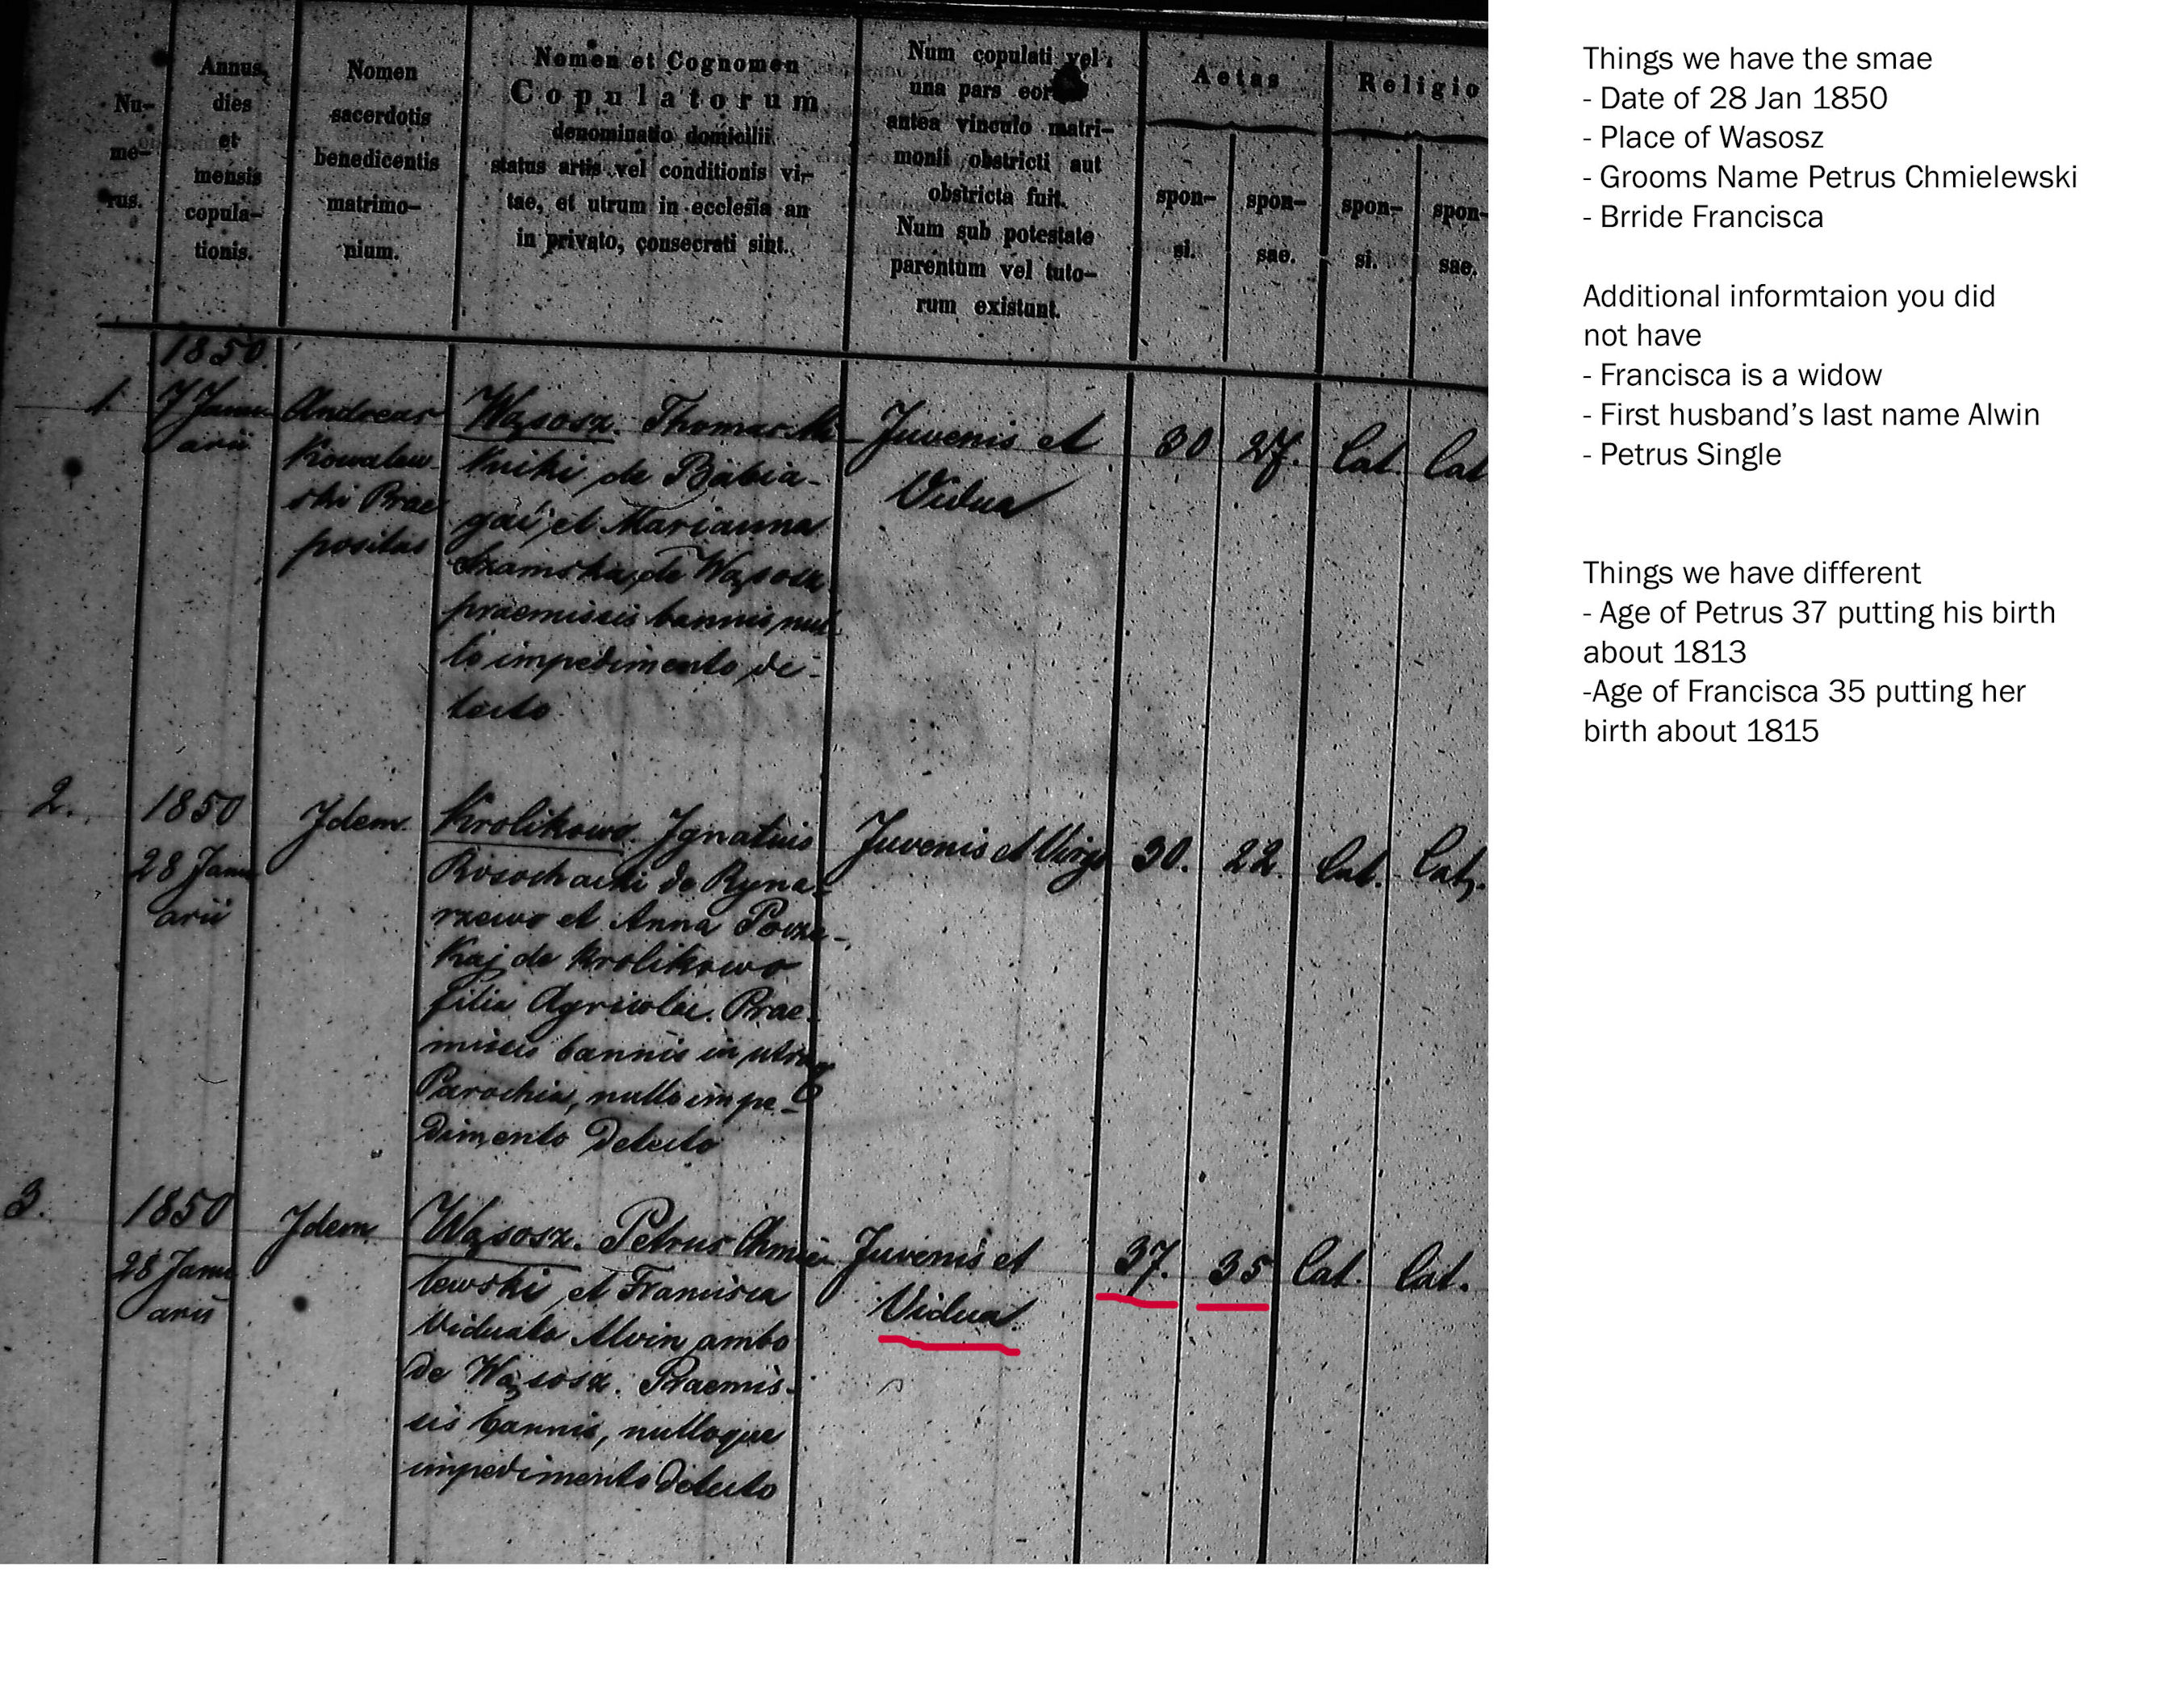 Nu-
me-
rus.
Annus,
dies
et
mensis
copula-
tionis.
Nomen
sacerdotis
benedicentis
matrimo-
nium.
Nomen et Cognomen
Copulatorum
denominatio domicilii
status artis vel conditionis vi-
tae, et utrum in ecclesia an
in privato, consecrati sint.
Num copulati vel
una pars eor
antea vinculo matri-
monii obstricti aut
obstricta fuit.
Num sub potestate
parentum vel tuto-
rum existant.
Aetas
spon-
si.
spon-
sae.
Religio
spon-
si.
spon-
sae.
1850.
1.
7 Janu
arii
Andreas
Kowalew-
ski Prae
positus
Wąsosz. Thomas
de Babia-
et Marianna
de Wąsosz
praemissis bannis nul-
lo impedimento de-
tecto
Juvenis et
Vidua
30
27.
Cat.
Cat
2.
1850
28 Janu
arii
Idem
Krolikowo. Ignatius
Rosochacki de Ryna-
rzewo et Anna
de Krolikowo
filia Agricolae. Prae-
missis bannis in
Parochia, nullo impe-
dimento detecto
Juvenis et Virgo
30.
22.
Cat.
Cat.
3.
1850
28 Janu
arii
Idem
Wąsosz. Petrus Chmie
lewski et Francisca
Viduata Alvin ambo
de Wąsosz. Praemis-
sis bannis, nulloque
impedimento detecto
Juvenis et
Vidua.
37.
35
Cat.
Cat.
Things we have the smae
- Date of 28 Jan 1850
- Place of Wasosz
- Grooms Name Petrus Chmielewski
- Brride Francisca
Additional informtaion you did
not have
- Francisca is a widow
- First husband’s last name Alwin
- Petrus Single
Things we have different
- Age of Petrus 37 putting his birth
about 1813
-Age of Francisca 35 putting her
birth about 1815